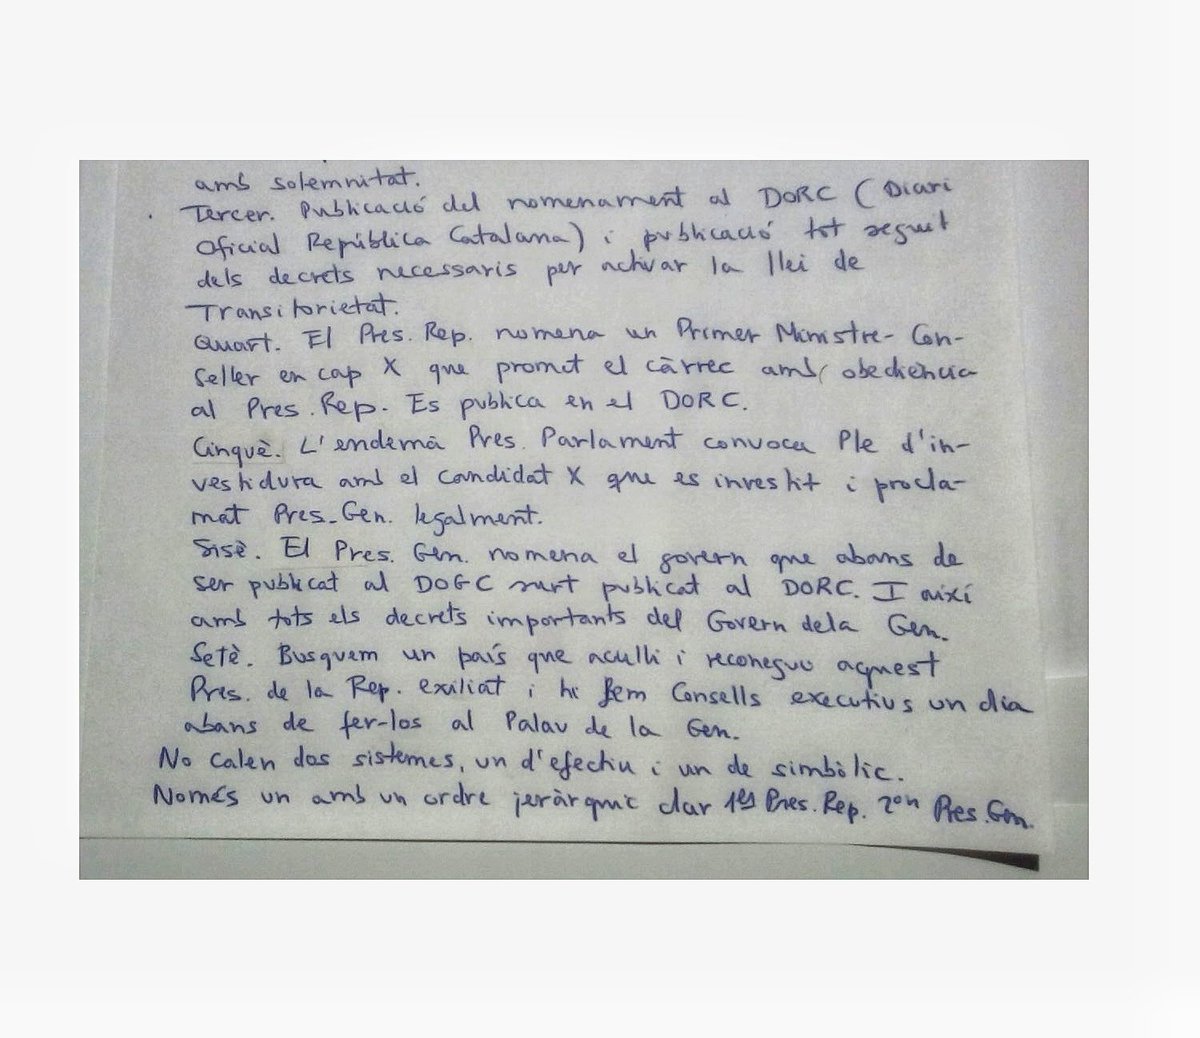 amb solemnitat.
Tercer. Publicació del nomenament al DORC (Diari
Oficial República Catalana) i publicació tot seguit
dels decrets necessaris per activar la llei de
Transitorietat.
Quart. El Pres. Rep. nomena un Primer Ministre-Con-
seller en cap X que promet el càrrec amb obediència
al Pres. Rep. Es publica en el DORC.
Cinquè. L'endemà Pres. Parlament convoca Ple d'in-
vestidura amb el candidat X que es investit i procla-
mat Pres. Gen. legalment.
Sisè. El Pres. Gen. nomena el govern que abans de
ser publicat al DOGC surt publicat al DORC. I així
amb tots els decrets importants del Govern dela Gen.
Setè. Busquem un país que aculli i reconegui aquest
Pres. de la Rep. exiliat i hi fem Consells executius un dia
abans de fer-los al Palau de la Gen.
No calen dos sistemes, un d'efectiu i un de simbòlic.
Només un amb un ordre jeràrquic clar 1er Pres. Rep. 2on Pres. Gen.